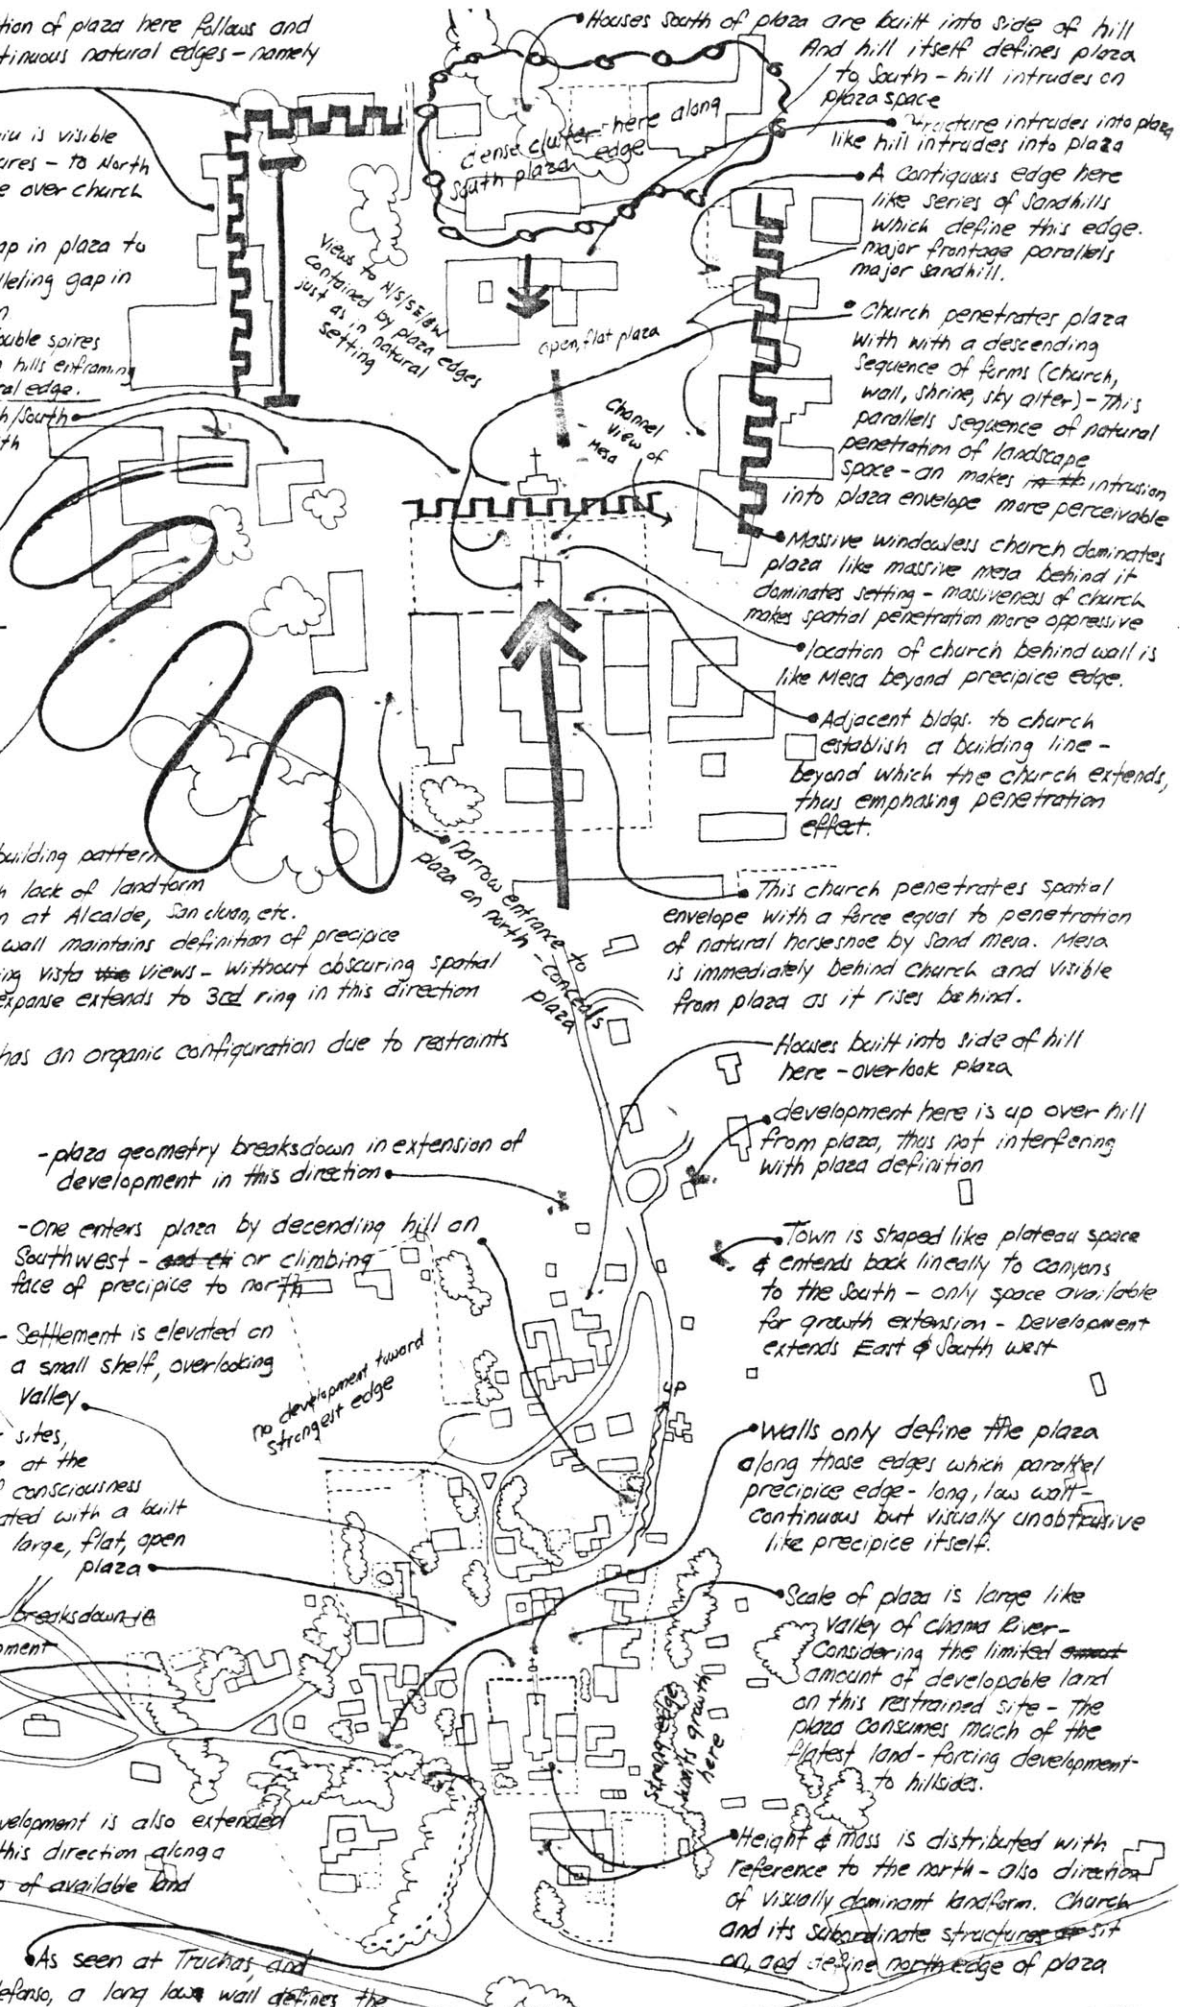 tion of plaza here follows and
tinuous natural edges - namely
iu is visible
ures - to North
e over church
ap in plaza to
lleling gap in
n
ouble spires
n hills enframing
ral edge.
h/South
th
Houses South of plaza are built into side of hill
And hill itself defines plaza
to South - hill intrudes on
plaza space
structure intrudes into plaza
like hill intrudes into plaza
A contiguous edge here
like series of sandhills
which define this edge.
major frontage parallels
major sandhill.
dense cluster here along
South plaza edge
Views to N/S/SE/SW
contained by plaza edges
just as in natural
setting
open, flat plaza
Channel
View of
Mesa
Church penetrates plaza
with with a descending
sequence of forms (church,
wall, shrine, sky alter) - This
parallels sequence of natural
penetration of landscape
space - an makes intrusion
into plaza envelope more perceivable
Massive windowless church dominates
plaza like massive mesa behind it
dominates setting - massiveness of church
makes spatial penetration more oppressive
location of church behind wall is
like Mesa beyond precipice edge.
Adjacent bldgs. to church
establish a building line -
beyond which the church extends,
thus emphasing penetration
effect.
building pattern
h lack of landform
n at Alcalde, San Juan, etc.
wall maintains definition of precipice
ing vista views - without obscuring spatial
expanse extends to 3rd ring in this direction
has an organic configuration due to restraints
narrow entrance to
plaza on north - conceals
plaza
This church penetrates spatial
envelope with a force equal to penetration
of natural horsesnoe by Sand Mesa. Mesa
is immediately behind Church and visible
from plaza as it rises behind.
Houses built into side of hill
here - overlook plaza
development here is up over hill
from plaza, thus not interfering
with plaza definition
-plaza geometry breaksdown in extension of
development in this direction
-One enters plaza by decending hill on
Southwest - or climbing
face of precipice to north
Town is shaped like plateau space
& entends back lineally to canyons
to the South - only space available
for growth extension - Development
extends East & South west
- Settlement is elevated on
a small shelf, overlooking
Valley
no development toward
strongest edge
UP
sites,
at the
consciousness
ated with a built
large, flat, open
plaza
Walls only define the plaza
along those edges which parallel
precipice edge - long, low wall -
continuous but visually unobtrusive
like precipice itself.
breaksdown in
pment
Scale of plaza is large like
Valley of Chama River -
Considering the limited
amount of developable land
on this restrained site - the
plaza consumes much of the
flatest land - forcing development
to hillsides.
strong edge
limits growth
here
velopment is also extended
this direction along a
of available land
Height & mass is distributed with
reference to the north - also direction
of visually dominant landform. Church
and its subordinate structures sit
on, and define north edge of plaza
As seen at Truchas, and
defonso, a long low wall defines the